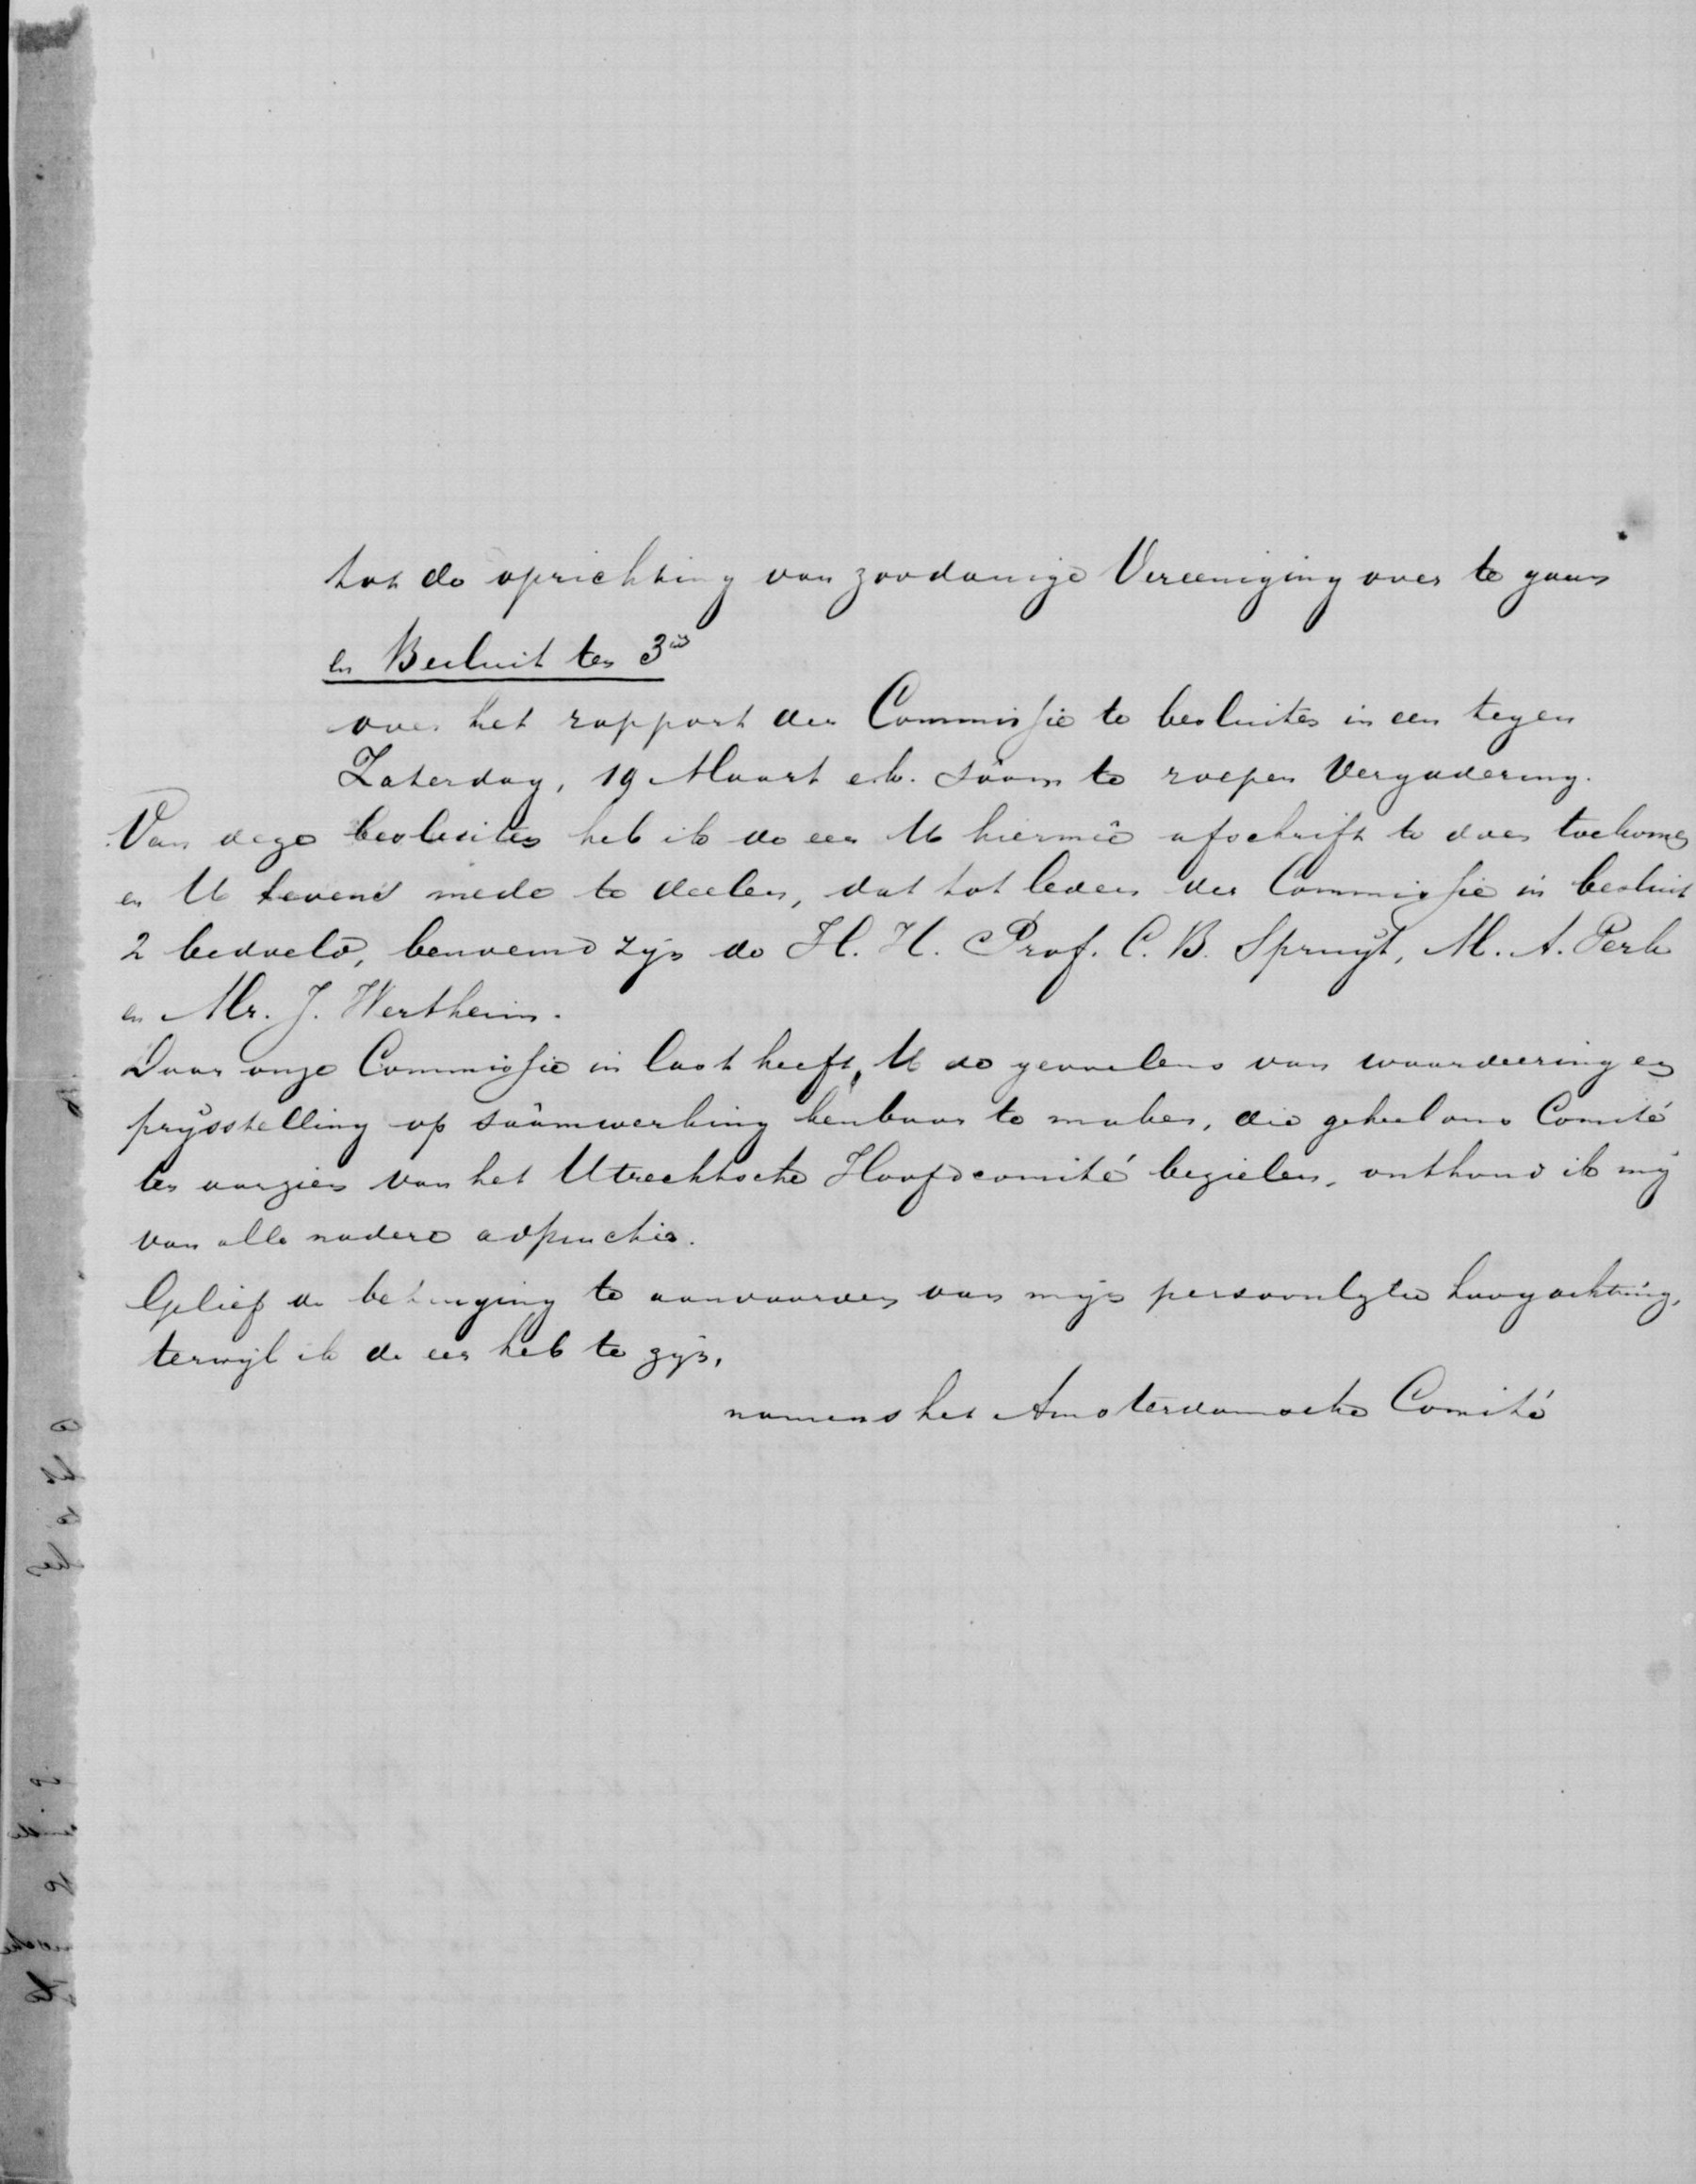 tot de oprichting van zoodanige Vereeniging over te gaan
en Besluit ten 3e
over het rapport der Commissie te besluiten in een tegen
Zaterdag, 19 Maart e.k. saam te roepen Vergadering.
Van deze besluiten heb ik de eer U hiermeê afschrift te doen toekomen
en U tevens mede te deelen, dat tot leden der Commissie in besluit
2 bedoeld, benoemd zijn de H. H. Prof. C. B. Spruijt, M. A. Perk
en Mr. J. Wertheim.
Daar onze Commissie in last heeft, U de gevoelens van waardeering en
prijsstelling op saâmwerking kenbaar te maken, die geheel ons Comité
ten aanzien van het Utrechtsche Hoofdcomité bezielen, onthoud ik mij
van alle nadere adjunctie.
Gelief de betuiging te aanvaarden van mijn persoonlijke hoogachting,
terwijl ik de eer heb te zijn,
namens het Amsterdamsche Comité